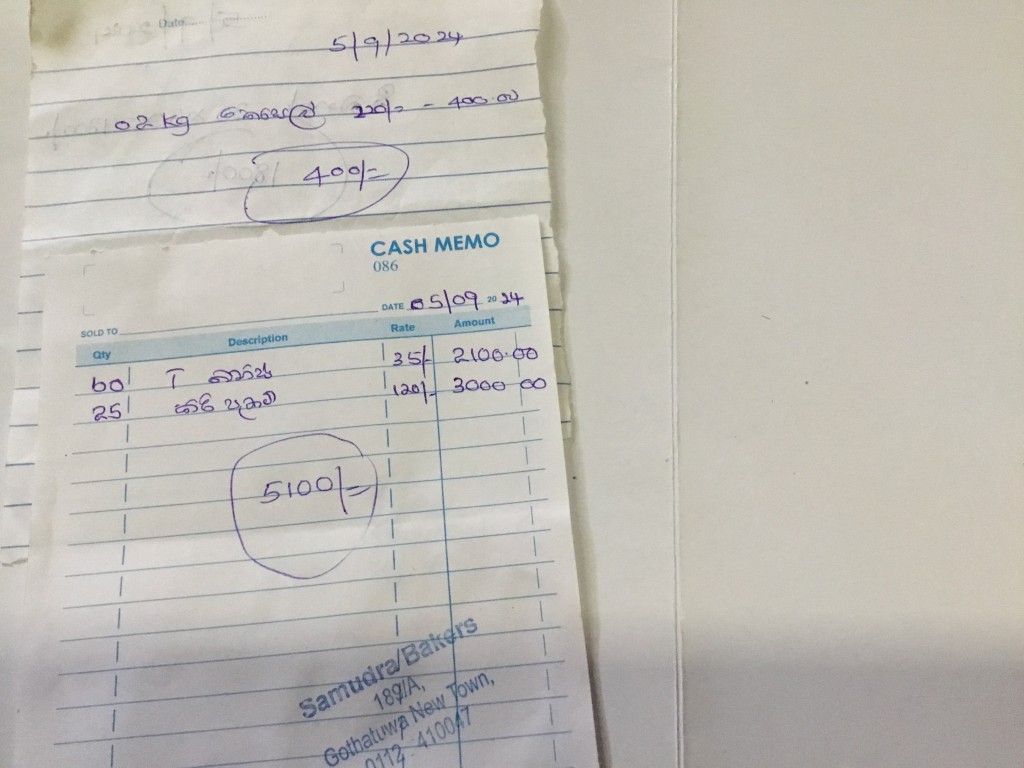 Date
5/9/2024
02 kg 220/- - 400.00
400/-
CASH MEMO
086
DATE 05/09 20 24
SOLD TO
Qty Description Rate Amount
60 T බනිස් 35/- 2100.00
25 120/- 3000 00
5100/-
Samudra Bakers
189/A,
Gothatuwa New Town,
0112 410047